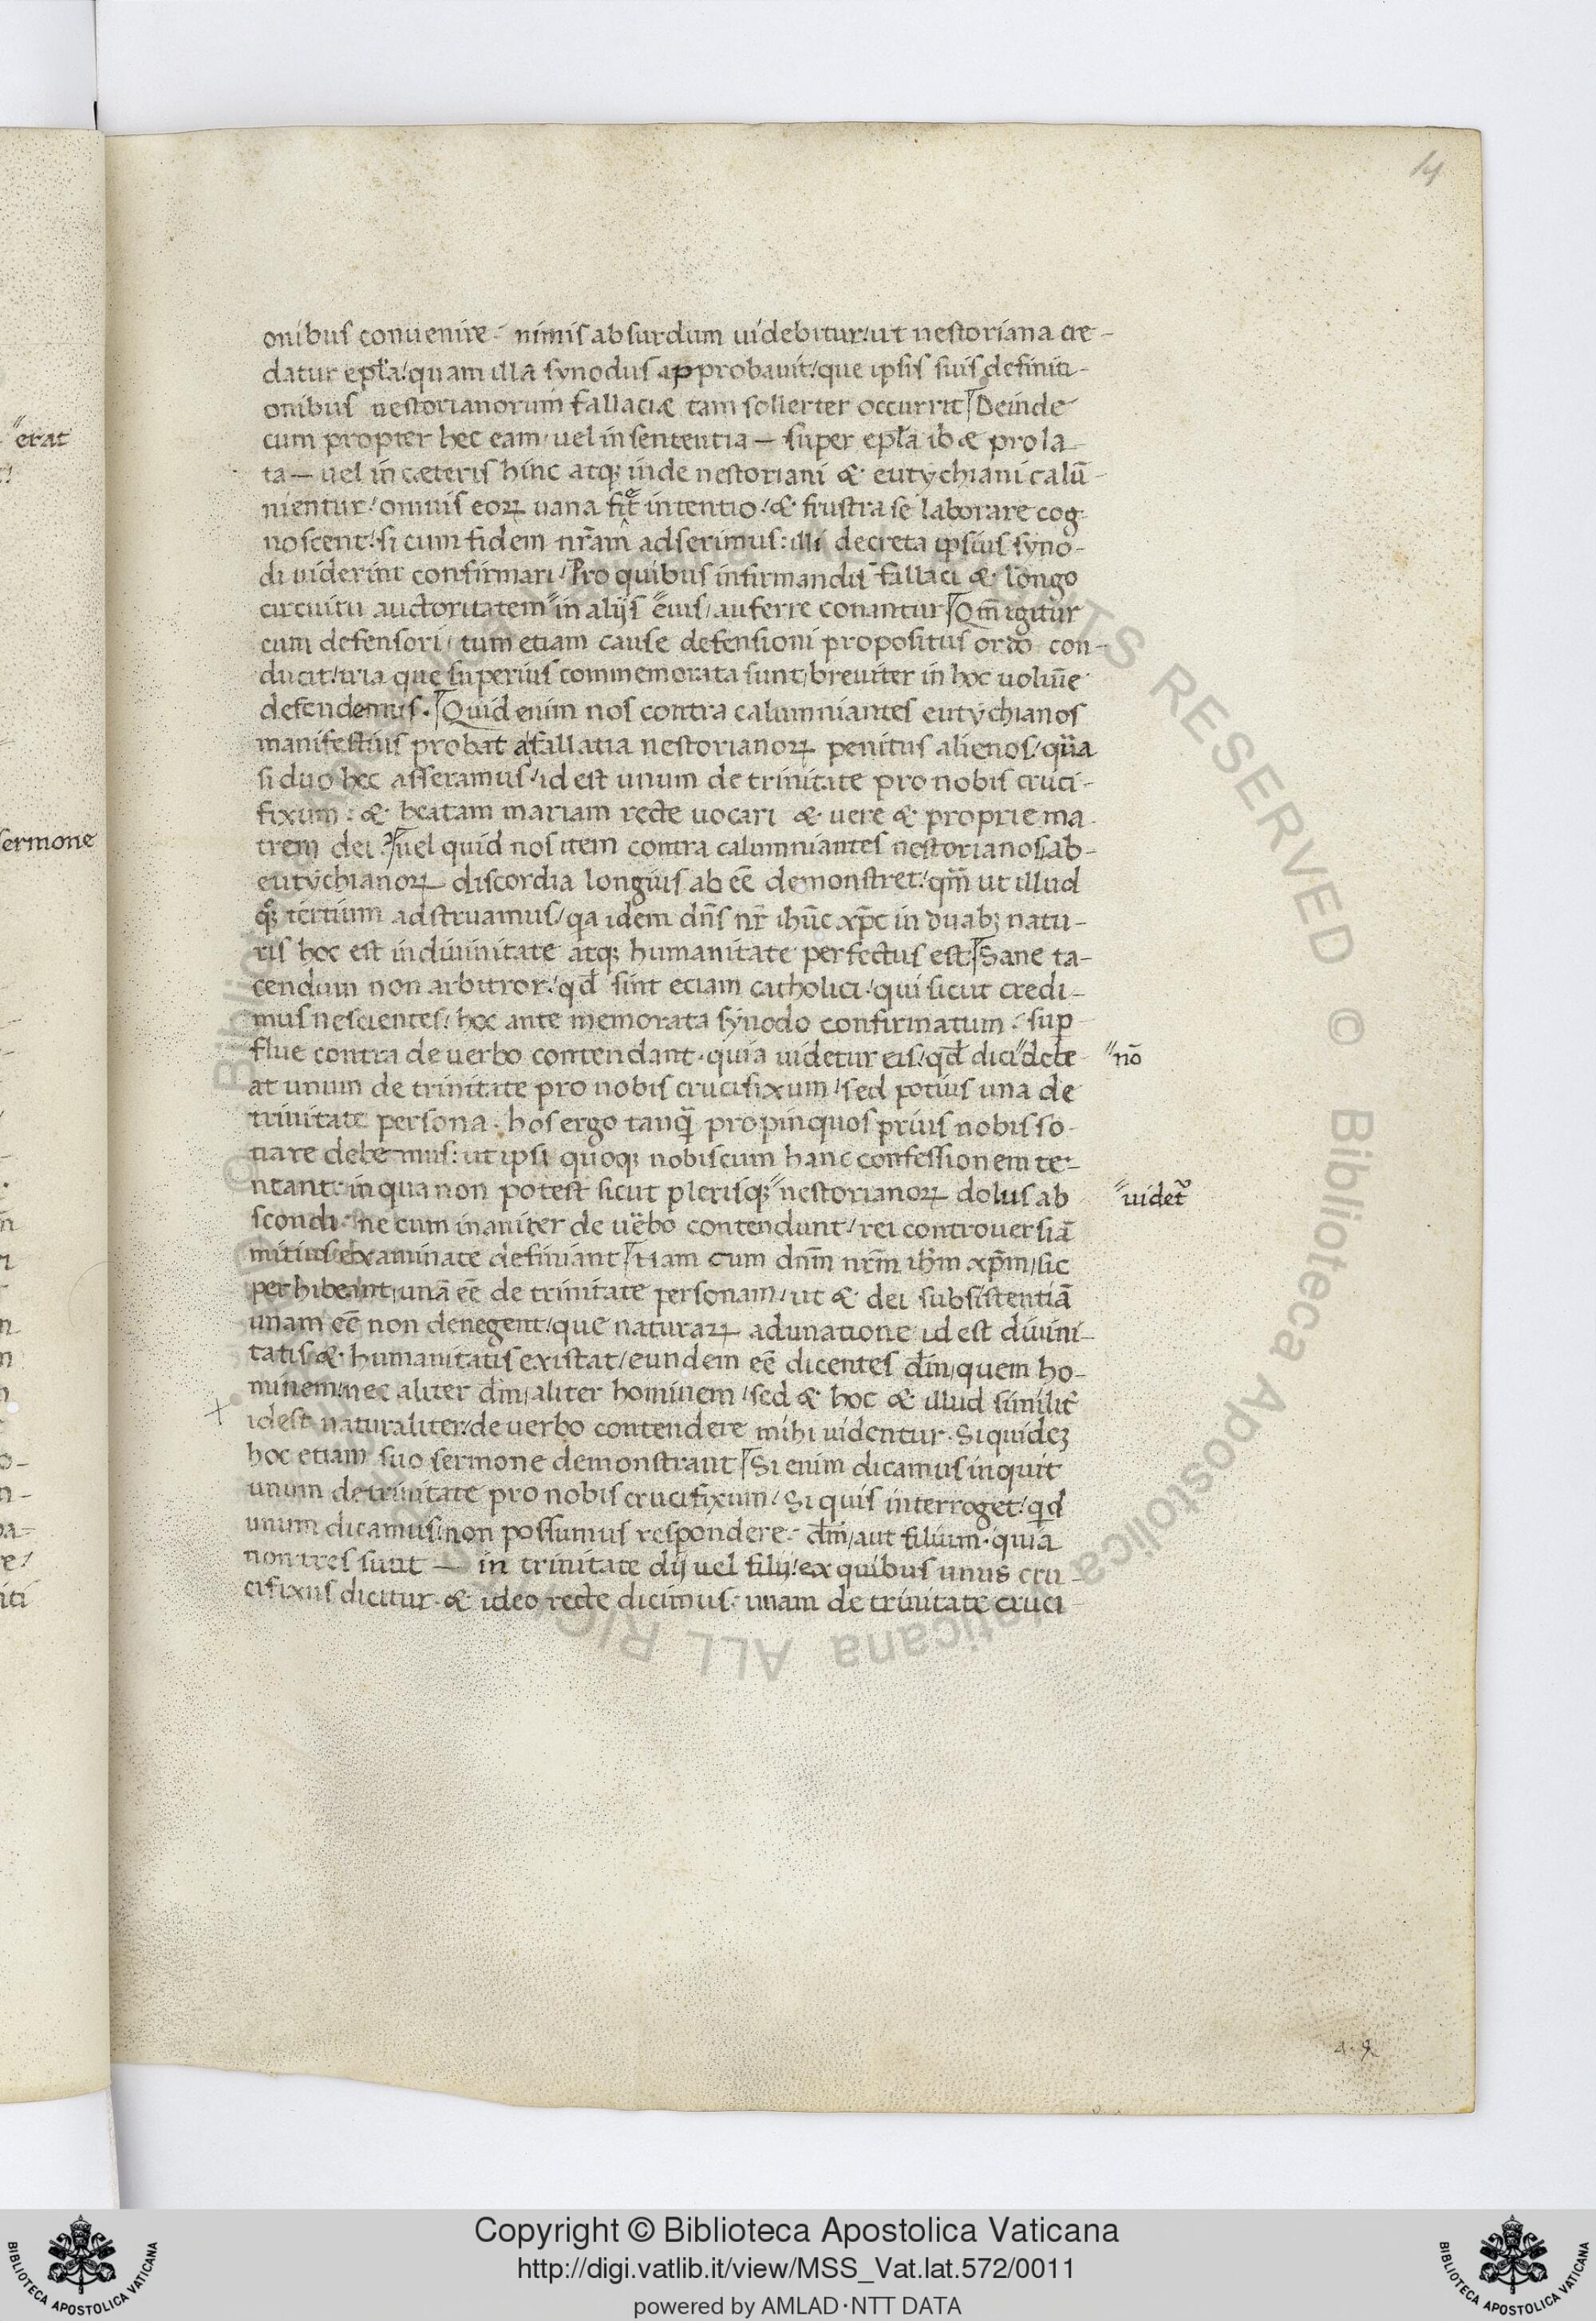 14
onibus conuenire· nimis absurdum uidebitur/ut nestoriana cre-
datur epl̄a/quam illa synodus approbauit/que ipsis suis definiti-
onibus nestorianorum fallaciæ tam sollerter occurrit Deinde
cum propter hec eam/uel in sententia — super epl̄a ibæ prola-
ta — uel in cæteris hinc atq; inde nestoriani & eutychiani calū-
nientur/omnis eoꝝ uana fit intentio/& frustra se laborare cog-
noscent/si cum fidem nr̄am adserimus: illi decreta ipsius syno-
di uiderint confirmari/Pro quibus infirmandis fallaci & longo
circuitu auctoritatem in alijs eius/auferre conantur Qm̄ igitur
cum defensori/tum etiam cause defensioni propositus ordo con-
ducit/tria que superius commemorata sunt/breuiter in hoc uolūe
defendemus· Quid enim nos contra calumniantes eutychianos
manifestius probat a fallatia nestorianoꝝ penitus alienos/quā
si duo hec asseramus/id est unum de trinitate pro nobis cruci-
fixum: & beatam mariam recte uocari & uere & proprie ma-
trem dei? uel quid nos item contra calumniantes nestorianos/ab-
eutychianoꝝ discordia longius ab eē demonstret/qm̄ ut illud
qͦꝫ tertium adstruamus/qa idem dn̄s nr̄ ihūc xp̄c in duabꝫ natu-
ris hoc est in diuinitate atq; humanitate perfectus est Sane ta-
cendum non arbitror/qd̄ sint etiam catholici/qui sicut credi-
mus nescientes/hoc ante memorata synodo confirmatum: sup-
flue contra de uerbo contendant·quia uidetur eis/qd̄ dici ″debe- ″nō
at unum de trinitate pro nobis crucifixum/sed potius una de
trinitate persona·hos ergo tanq̄ propinquos prius nobis so-
tiare debemus: ut ipsi quoq; nobiscum hanc confessionem te-
neant: in qua non potest sicut plerisq; ″nestorianoꝝ dolus ab ″uidet᷑
scondi· ne cum inaniter de uerbo contendunt/rei controuersiā
mitius examinate definiant nam cum dnm̄ nrm̄ ihm̄ xp̄m/sic
perhibeant/unā eē de trinitate personam/ut & dei subsistentiā
unam eē non denegent/que naturaꝝ adunatione id est diuini-
tatis & humanitatis existat/eundem eē dicentes dm̄/quem ho-
minem/nec aliter dm̄/aliter hominem/sed & hoc & illud similit᷑
idest naturaliter/de uerbo contendere mihi uidentur· Siquideꝫ
hoc etiam suo sermone demonstrant Si enim dicamus inquit
unum de trinitate pro nobis crucifixum/Si quis interroget/qd
unum dicamus/non possumus respondere· dm̄/aut filium·quia
non tres sunt — in trinitate dij uel filij/ex quibus unus cru-
cifixus dicitur·& ideo recte dicimus· unam de trinitate cruci-
erat
sermone
Copyright © Biblioteca Apostolica Vaticana
http://digi.vatlib.it/view/MSS_Vat.lat.572/0011
powered by AMLAD·NTT DATA
BIBLIOTECA APOSTOLICA VATICANA
BIBLIOTECA APOSTOLICA VATICANA